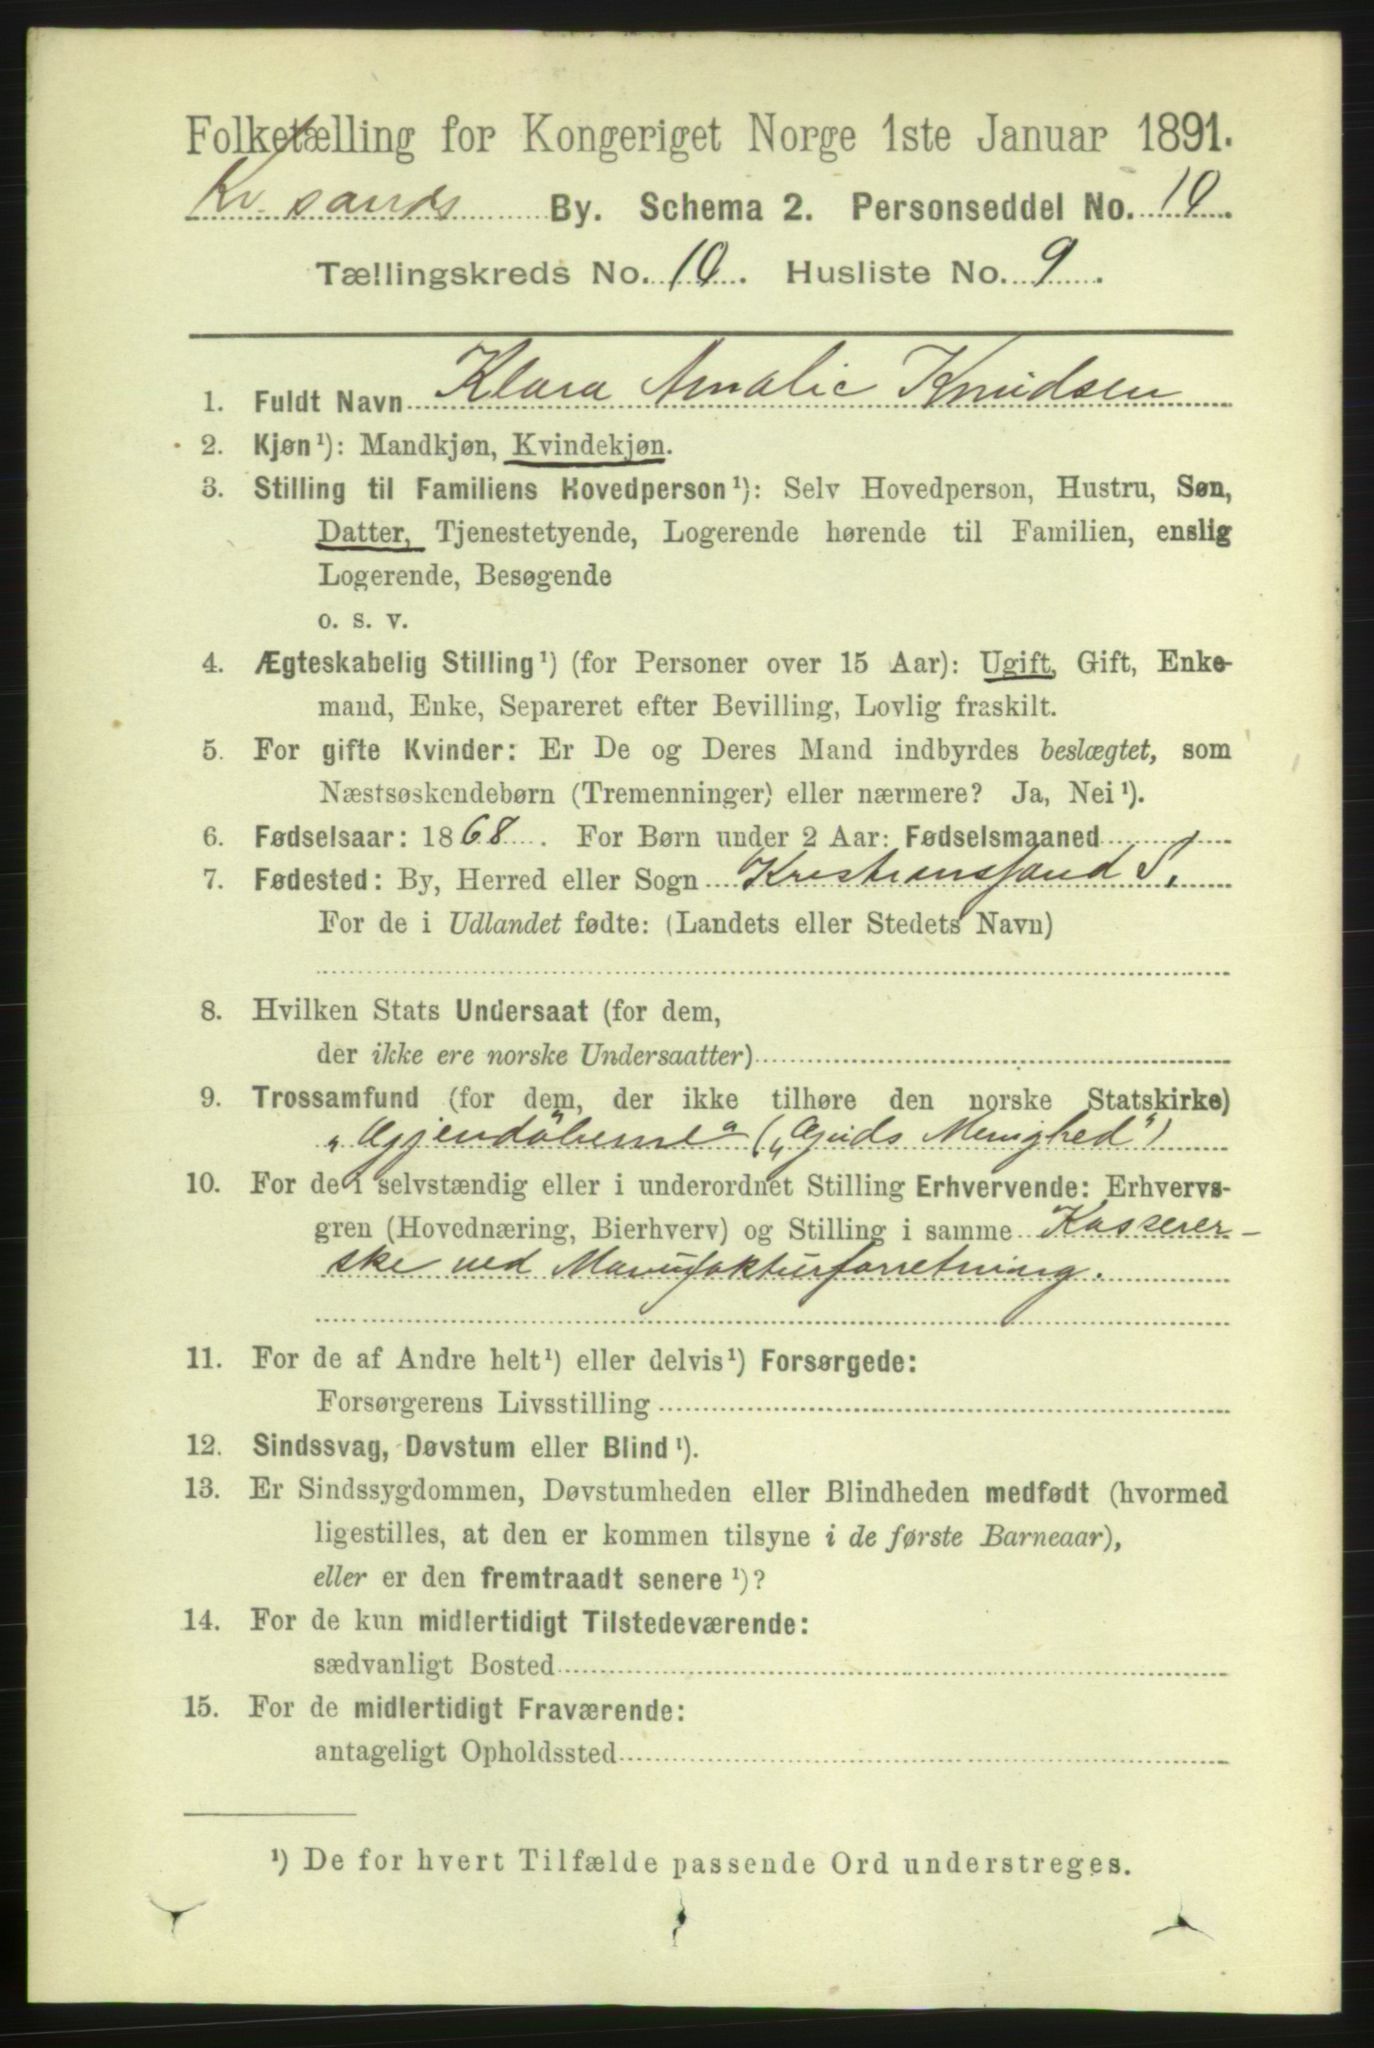 Folketælling for Kongeriget Norge 1ste Januar 1891.
Kr.sands By. Schema 2. Personseddel No. 10.
Tællingskreds No. 10. Husliste No. 9.
1. Fuldt Navn Klara Amalie Knudsen
2. Kjøn¹): Mandkjøn, Kvindekjøn.
3. Stilling til Familiens Hovedperson¹): Selv Hovedperson, Hustru, Søn,
Datter, Tjenestetyende, Logerende hørende til Familien, enslig
Logerende, Besøgende
o. s. v.
4. Ægteskabelig Stilling¹) (for Personer over 15 Aar): Ugift, Gift, Enke-
mand, Enke, Separeret efter Bevilling, Lovlig fraskilt.
5. For gifte Kvinder: Er De og Deres Mand indbyrdes beslægtet, som
Næstsøskendebørn (Tremenninger) eller nærmere? Ja, Nei¹).
6. Fødselsaar: 1868. For Børn under 2 Aar: Fødselsmaaned
7. Fødested: By, Herred eller Sogn Kristianssand S.
For de i Udlandet fødte: (Landets eller Stedets Navn)
8. Hvilken Stats Undersaat (for dem,
der ikke ere norske Undersaatter)
9. Trossamfund (for dem, der ikke tilhøre den norske Statskirke)
„Gjendöberne“ („Guds Menighed“)
10. For de i selvstændig eller i underordnet Stilling Erhvervende: Erhvervs-
gren (Hovednæring, Bierhverv) og Stilling i samme Kasserer-
ske ved Manufakturforretning.
11. For de af Andre helt¹) eller delvis¹) Forsørgede:
Forsørgerens Livsstilling
12. Sindssvag, Døvstum eller Blind¹).
13. Er Sindssygdommen, Døvstumheden eller Blindheden medfødt (hvormed
ligestilles, at den er kommen tilsyne i de første Barneaar),
eller er den fremtraadt senere¹)?
14. For de kun midlertidigt Tilstedeværende:
sædvanligt Bosted
15. For de midlertidigt Fraværende:
antageligt Opholdssted
¹) De for hvert Tilfælde passende Ord understreges.